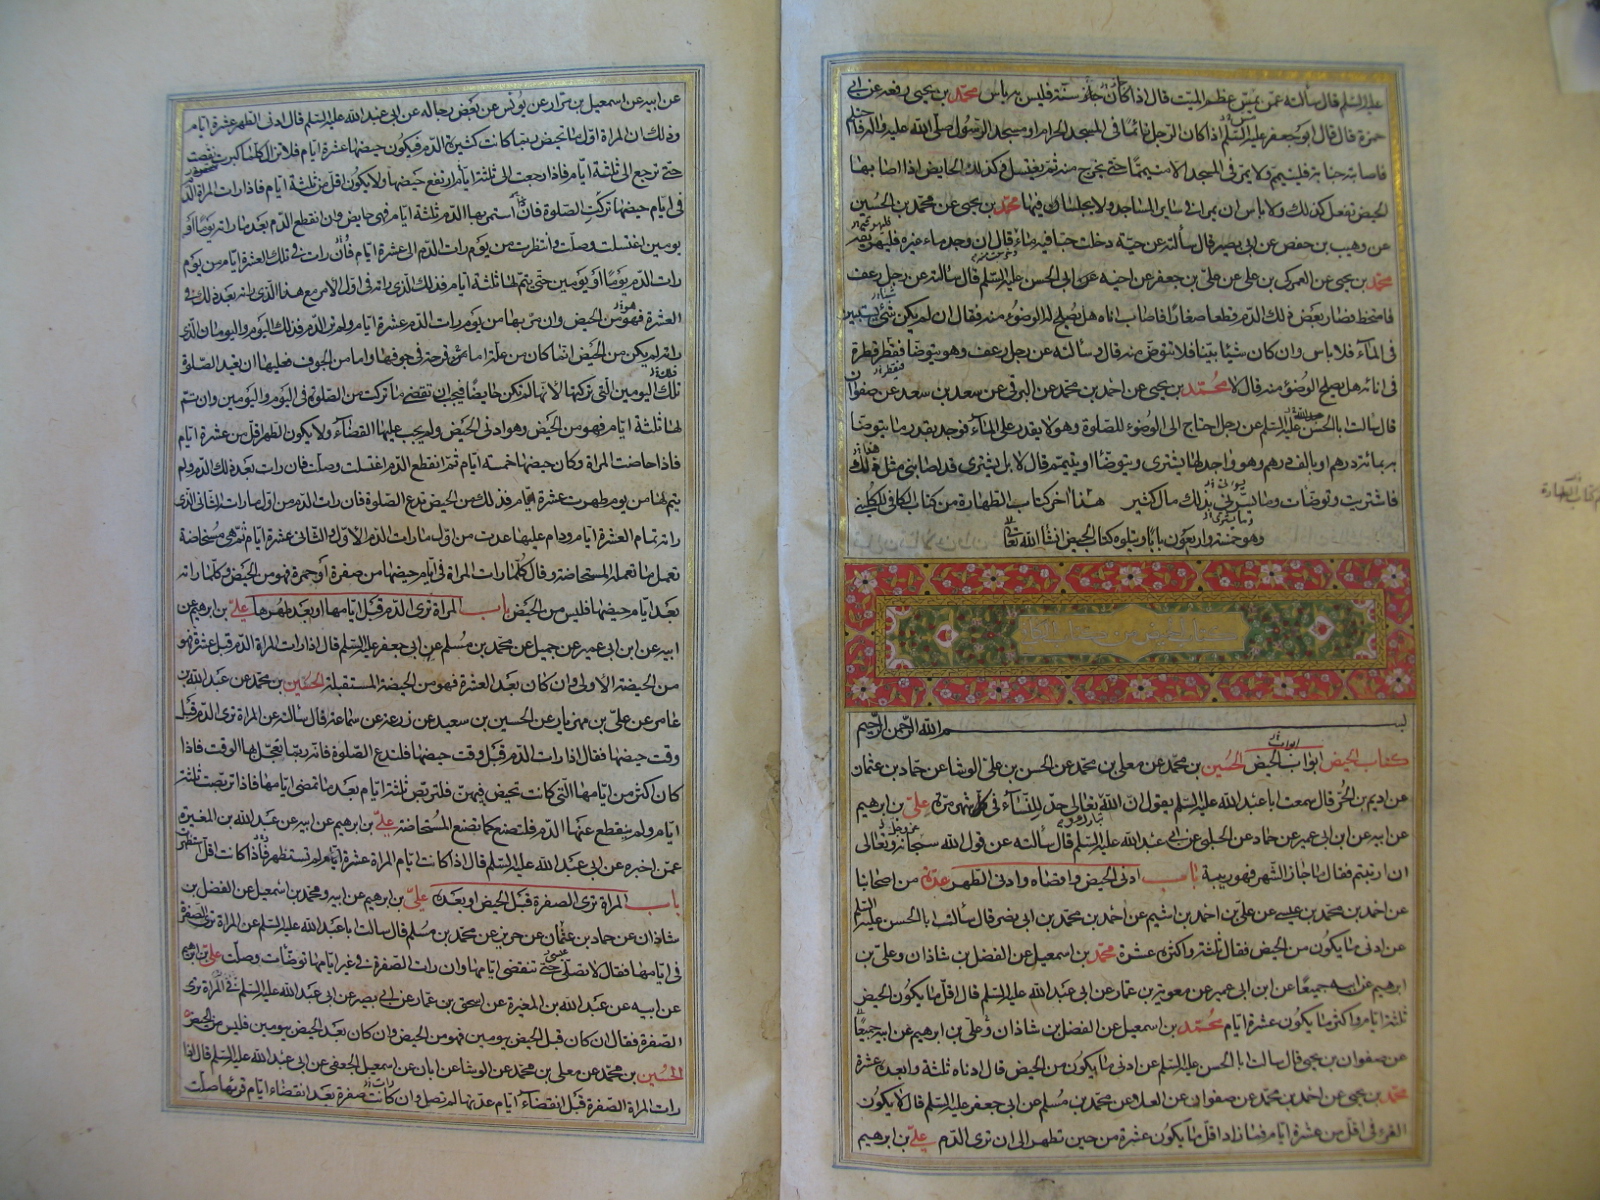 عليه السلم قال سألته عمن يمس عظم الميت قال اذا كان جاز سنة فليس به باس محمد بن يحيى رفعه عن ابى
حمزة قال قال ابو جعفر عليه السلم اذا كان الرجل نائما فى المسجد الحرام او مسجد الرسول صلى الله عليه واله فاحتلم
فاصابته جنابة فليتيمم ولا يمر فى المسجد الا متيمما حتى يخرج منه ثم يغتسل وكذلك الحايض اذا اصابها
الحيض تفعل كذلك ولا باس ان يمرا فى ساير المساجد ولا يجلسان فيها محمد بن يحيى عن محمد بن الحسين
عن وهيب بن حفص عن ابى بصير قال سألته عن حية دخلت حبا فيه ماء قال ان وجد ماء غيره فليهرقه
محمد بن يحيى عن العمركى بن على عن على بن جعفر عن اخيه ابى الحسن عليه السلم قال سألته عن رجل رعف
فامتخط فصار بعض ذلك الدم قطعا صغارا فاصاب اناه هل يصلح له الوضوء منه فقال ان لم يكن شئ يستبين
فى الماء فلا باس وان كان شيئا بينا فلا يتوضأ منه قال وسالته عن رجل رعف وهو يتوضا فقطر قطرة
فى انائه هل يصلح الوضوء منه قال لا محمد بن يحيى عن احمد بن محمد عن البرقى عن سعد بن سعد عن صفوان
قال سالت ابا الحسن عليه السلم عن رجل احتاج الى الوضوء للصلوة وهو لا يقدر على الماء فوجد بقدر ما يتوضا
به بمائة درهم او بالف درهم وهو واجد لها يشترى ويتوضأ او يتيمم قال لا بل يشترى قد اصابنى مثل ذلك
فاشتريت وتوضات وما يسرنى بذلك مال كثير هذا آخر كتاب الطهارة من كتاب الكافى للكلينى
وهو خمسة واربعون بابا ويتلوه كتاب الحيض انشا الله تعالى
كتاب الحيض من كتاب الكافى
بسم الله الرحمن الرحيم
كتاب الحيض ابواب الحيض الحسين بن محمد عن معلى بن محمد عن الحسن بن على الوشا عن حماد بن عثمان
عن اديم بن الحر قال سمعت ابا عبد الله عليه السلم يقول ان الله تعالى حد للنساء فى كل شهر مرة على بن ابرهيم
عن ابيه عن ابن ابى عمير عن حماد عن الحلبى عن ابى عبد الله عليه السلم قال سألته عن قول الله سبحانه وتعالى
ان ارتبتم فقال ما جاز الشهر فهو ريبة باب ادنى الحيض واقصاه وادنى الطهر عدة من اصحابنا
عن احمد بن محمد بن عيسى عن على بن احمد بن اشيم عن احمد بن محمد بن ابى نصر قال سألت ابا الحسن عليه السلم
عن ادنى ما يكون من الحيض فقال ثلثة واكثره عشرة محمد بن اسمعيل عن الفضل بن شاذان وعلى بن
ابرهيم عن ابيه جميعا عن ابن ابى عمير عن معوية بن عمار عن ابى عبد الله عليه السلم قال اقل ما يكون الحيض
ثلثة ايام واكثر ما يكون عشرة ايام محمد بن اسمعيل عن الفضل بن شاذان وعلى بن ابرهيم عن ابيه جميعا
عن صفوان بن يحيى قال سالت ابا الحسن عليه السلم عن ادنى ما يكون من الحيض قال ادناه ثلثة وابعده عشرة
محمد بن يحيى عن احمد بن محمد عن صفوان عن العلا عن محمد بن مسلم عن ابى جعفر عليه السلم قال لا يكون
القرء فى اقل من عشرة ايام فما زاد اقل ما يكون عشرة من حين تطهر الى ان ترى الدم على بن ابرهيم
عن ابيه عن اسمعيل بن مرار عن يونس عن بعض رجاله عن ابى عبد الله عليه السلم قال ادنى الطهر عشرة ايام
وذلك ان المراة اول ما تحيض ربما كانت كثيرة الدم فيكون حيضها عشرة ايام فلا تزال كلما كبرت نقصت
حتى ترجع الى ثلثة ايام فاذا رجعت الى ثلثة ايام ارتفع حيضها ولا يكون اقل من ثلثة ايام فاذا رات المراة الدم
فى ايام حيضها تركت الصلوة فان استمر بها الدم ثلثة ايام فهى حايض وان انقطع الدم بعد ما راته يوما او
يومين اغتسلت وصلت وانتظرت من يوم رات الدم الى عشرة ايام فان رات فى تلك العشرة ايام من يوم
رات الدم يوما او يومين حتى يتم لها ثلثة ايام فذلك الذى راته فى اول الامر مع هذا الذى راته بعد ذلك فى
العشرة فهو من الحيض وان مر بها من يوم رات الدم عشرة ايام ولم تر الدم فذلك اليوم واليومان الذى
راته لم يكن من الحيض انما كان من علة اما من قرحة فى جوفها واما من الجوف فعليها ان تعيد الصلوة
تلك اليومين التى تركتها لانها لم تكن حايضا فيجب ان تقضى ما تركت من الصلوة فى اليوم واليومين وان تم
لها ثلثة ايام فهو من الحيض وهو ادنى الحيض ولم يجب عليها القضاء ولا يكون الطهر اقل من عشرة ايام
فاذا حاضت المراة وكان حيضها خمسة ايام ثم انقطع الدم اغتسلت وصلت فان رات بعد ذلك الدم ولم
يتم لها من يوم طهرت عشرة ايام فذلك من الحيض تدع الصلوة فان رات الدم من اول ما رات الثانى الذى
راته تمام العشرة ايام ودام عليها عدت من اول ما رات الدم الاول والثانى عشرة ايام ثم هى مستحاضة
تعمل ما تعمله المستحاضة وقال كلما رات المراة فى ايام حيضها من صفرة او حمرة فهو من الحيض وكلما راته
بعد ايام حيضها فليس من الحيض باب المراة ترى الدم قبل ايامها او بعد طهرها على بن ابرهيم عن
ابيه عن ابن ابى عمير عن جميل عن محمد بن مسلم عن ابى جعفر عليه السلم قال اذا رات المراة الدم قبل عشرة فهو
من الحيضة الاولى وان كان بعد العشرة فهو من الحيضة المستقبلة الحسين بن محمد عن عبد الله بن
عامر عن على بن مهزيار عن الحسين بن سعيد عن زرعة عن سماعة قال سالته عن المراة ترى الدم قبل
وقت حيضها فقال اذا رات الدم قبل وقت حيضها فلتدع الصلوة فانه ربما تعجل بها الوقت فاذا
كان اكثر من ايامها التى كانت تحيض فيهن فلتربص ثلثة ايام بعد ما تمضى ايامها فاذا تربصت ثلثة
ايام ولم ينقطع عنها الدم فلتصنع كما تصنع المستحاضة على بن ابرهيم عن ابيه عن عبد الله بن المغيرة
عمن اخبره عن ابى عبد الله عليه السلم قال اذا كانت ايام المراة عشرة ايام لم تستظهر فاذا كانت اقل استظهرت
باب المراة ترى الصفرة قبل الحيض او بعده على بن ابرهيم عن ابيه ومحمد بن اسمعيل عن الفضل بن
شاذان عن حماد بن عثمان عن حريز عن محمد بن مسلم قال سالت ابا عبد الله عليه السلم عن المراة ترى الصفرة
فى ايامها فقال لا تصلى حتى تنقضى ايامها وان رات الصفرة فى غير ايامها توضات وصلت على بن ابرهيم
عن ابيه عن عبد الله بن المغيرة عن اسحق بن عمار عن ابى بصير عن ابى عبد الله عليه السلم فى المراة ترى
الصفرة فقال ان كان قبل الحيض بيومين فهو من الحيض وان كان بعد الحيض بيومين فليس من الحيض
الحسين بن محمد عن معلى بن محمد عن الوشا عن ابان عن اسمعيل الجعفى عن ابى عبد الله عليه السلم قال اذا
رات المراة الصفرة قبل انقضاء ايام عدتها لم تصل وان كانت صفرة بعد انقضاء ايام قرئها صلت